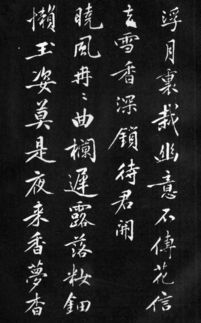 浮月裏栽幽意不傳花信
去雪香深鎖待君開
曉風冉冉曲欄遲露落妝鈿
懶玉姿莫是夜来香夢杳